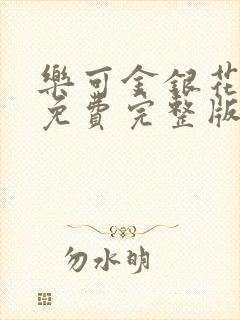 樂可金銀花
免費完整版
勿水明